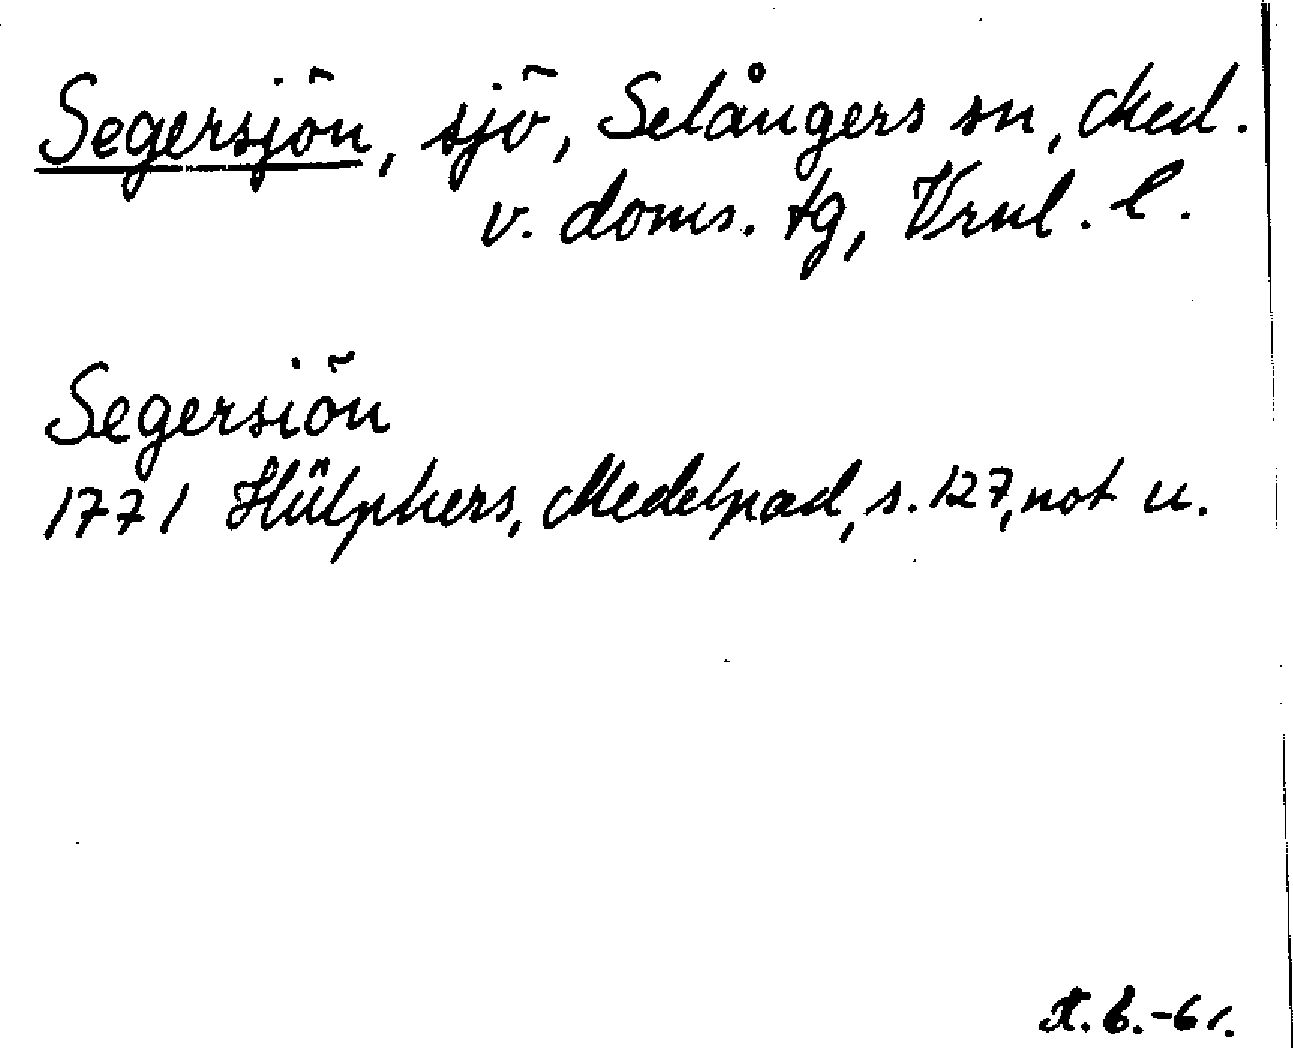 Segersjön, sjö, Selångers sn, Med.
v. doms. tg, Vrnl. l.
Segersiön
1771 Hülphers, Medelpad, s. 127, not u.
6.-61.